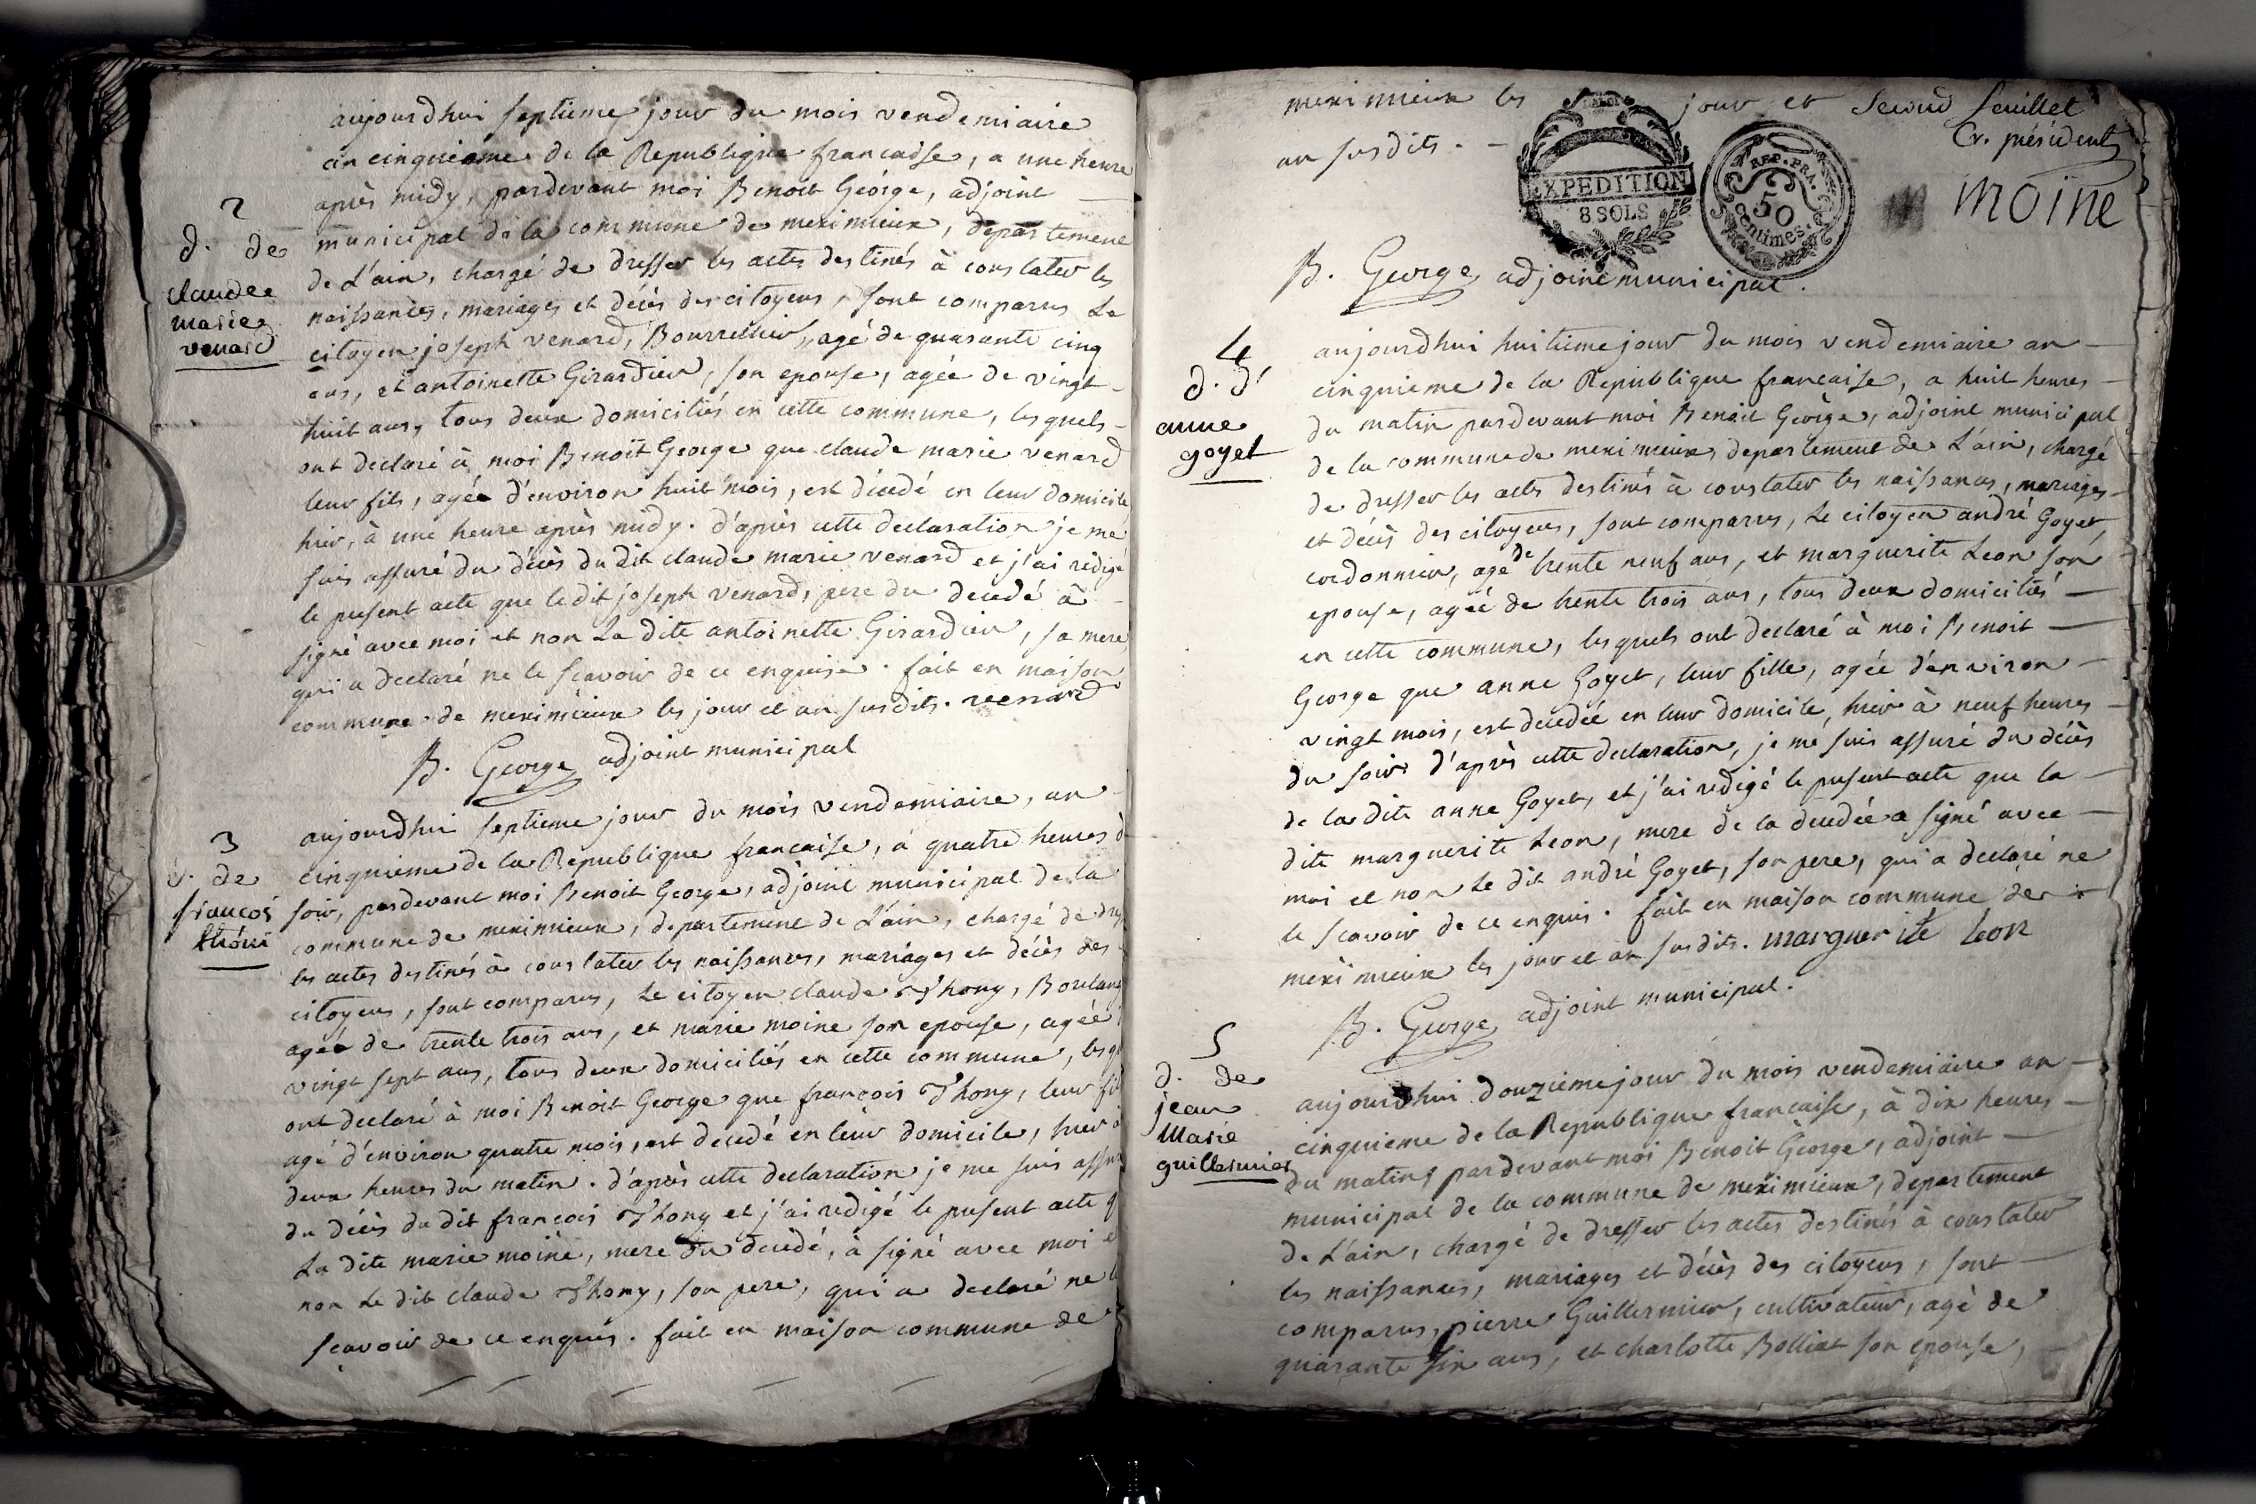 2
d. de
claude
marie
venard
aujourdhui septieme jour du mois vendemiaire
an cinquieme de la Republique francaise, a une heure
après midy, pardevant moi Benoit George, adjoint
municipal de la commune de meximieux, departement
de L'ain, chargé de dresser les actes destinés à constater les
naissances, mariages et décès des citoyens, sont comparus Le
citoyen joseph venard, Bourrellier, agé de quarante cinq
ans, et antoinette Girardier, son epouse, agée de vingt
huit ans, tous deux domiciliés en cette commune, lesquels
ont declaré à moi Benoit George que claude marie venard
leur fils, agée d'environ huit mois, est décédé en leur domicile
hier, à une heure après midy. d'après cette declaration je me
suis assuré du décès du dit claude marie venard et j'ai rédigé
le present acte que ledit joseph venard, pere du decedé à
signé avec moi et non La dite antoinette Girardier, sa mere
qui a declaré ne le scavoir de ce enquise. fait en maison
commune de meximieux les jour et an susdits. venard
B. George adjoint municipal
3
d. de
francois
thóni
aujourdhui septieme jour du mois vendemiaire, an
cinquieme de la Republique francaise, à quatre heures d
soir, pardevant moi Benoit George, adjoint municipal de la
commune de meximieux, departement de L'ain, chargé de dre
les actes destinés à constater les naissances, mariages et décès des
citoyens, sont comparus, Le citoyen claude Thony, Boulang
agée de trente trois ans, et marie moine son epouse, agée
vingt sept ans, tous deux domiciliés en cette commune, lesqu
ont declaré à moi Benoit George que françois Thony, leur fil
agé d'environ quatre mois, est decedé en leur domicile, hier à
deux heures du matin. d'après cette declaration je me suis assu
du décès du dit françois Thony et j'ai redigé le present acte q
La dite marie moine, mere du decedé, à signé avec moi e
non Le dit claude Thony, son pere, qui a declaré ne l
scavoir de ce enquis. fait en maison commune de
meximieux les jour et
an susdits.
second feuillet
Cr. président
moine
EXPEDITION
8 SOLS
REP. FRA.
50
Centimes.
B. George adjoint municipal.
4
d. d'
anne
goyet
aujourdhui huitieme jour du mois vendemiaire an
cinquieme de la Republique francaise, a huit heures
du matin pardevant moi Benoit George, adjoint municipal
de la commune de meximieux, departement de L'ain, chargé
de dresser les actes destinés à constater les naissances, mariages
et décès des citoyens, sont comparus, Le citoyen andré Goyet,
cordonnier, agé de trente neuf ans, et marguerite Leon son
epouse, agée de trente trois ans, tous deux domiciliés
en cette commune, lesquels ont declaré à moi Benoit
George que anne Goyet, leur fille, agée d'environ
vingt mois, est decedée en leur domicile, hier à neuf heures
du soir d'après cette declaration, je me suis assuré du décès
de la dite anne Goyet, et j'ai redigé le present acte que la
dite marguerite Leon, mere de la decedée a signé avec
moi et non Le dit andré Goyet, son pere, qui a declaré ne
le scavoir de ce enquis. fait en maison commune de
meximieux les jour et an susdits. marguerite leon
B. George adjoint municipal.
5
d. de
jean
Marie
guillermier
aujourdhui douzieme jour du mois vendemiaire an
cinquieme de la Republique francaise, à dix heures
du matin, pardevant moi Benoit George, adjoint
municipal de la commune de meximieux, departement
de L'ain, chargé de dresser les actes destinés à constater
les naissances, mariages et décès des citoyens, sont
comparus, pierre Guillermier, cultivateur, agé de
quarante six ans, et charlotte Bolliat son epouse,